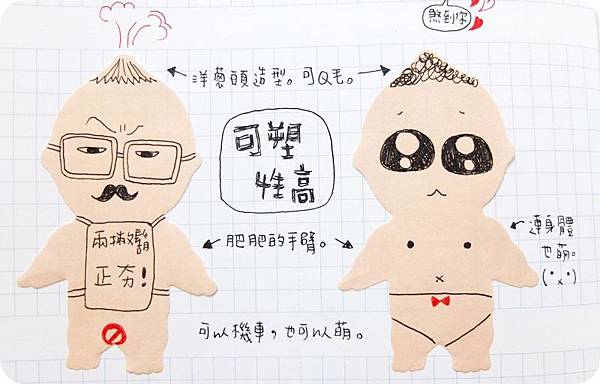 煞到你
洋葱頭造型。可Q毛。
可塑
性高
兩撇鬍
正夯!
肥肥的手臂。
連身體
也萌。
(·x·)
可以機車,也可以萌。